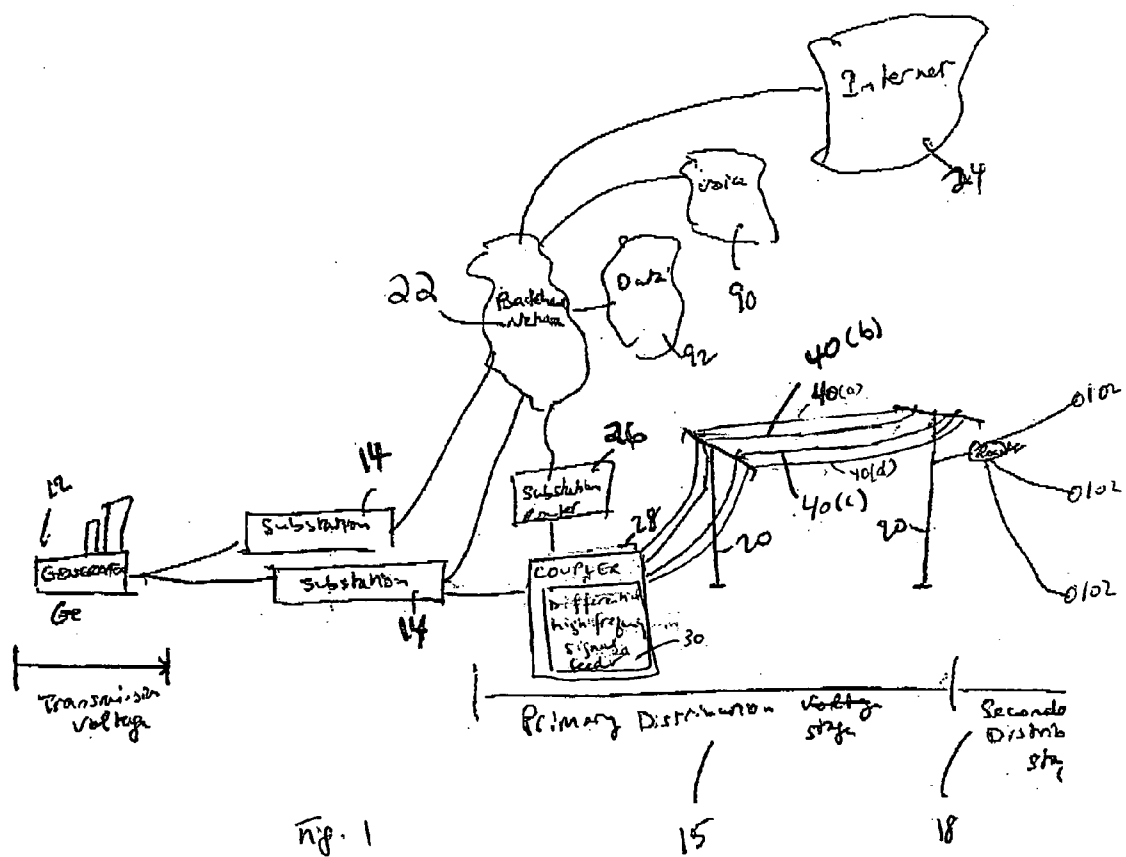 Internet
24
voice
90
Data
92
22
Backhaul
Network
40(b)
40(a)
40(d)
40(c)
0102
0102
0102
26
Substation
Router
12
14
Substation
GENERATOR
Ge
Substation
14
28
COUPLER
Differential
high frequen
signal
feed
30
20
20
Transmission
voltage
Primary Distribution voltage
stage
Seconda
Distrib
sta
15
18
Fig. 1